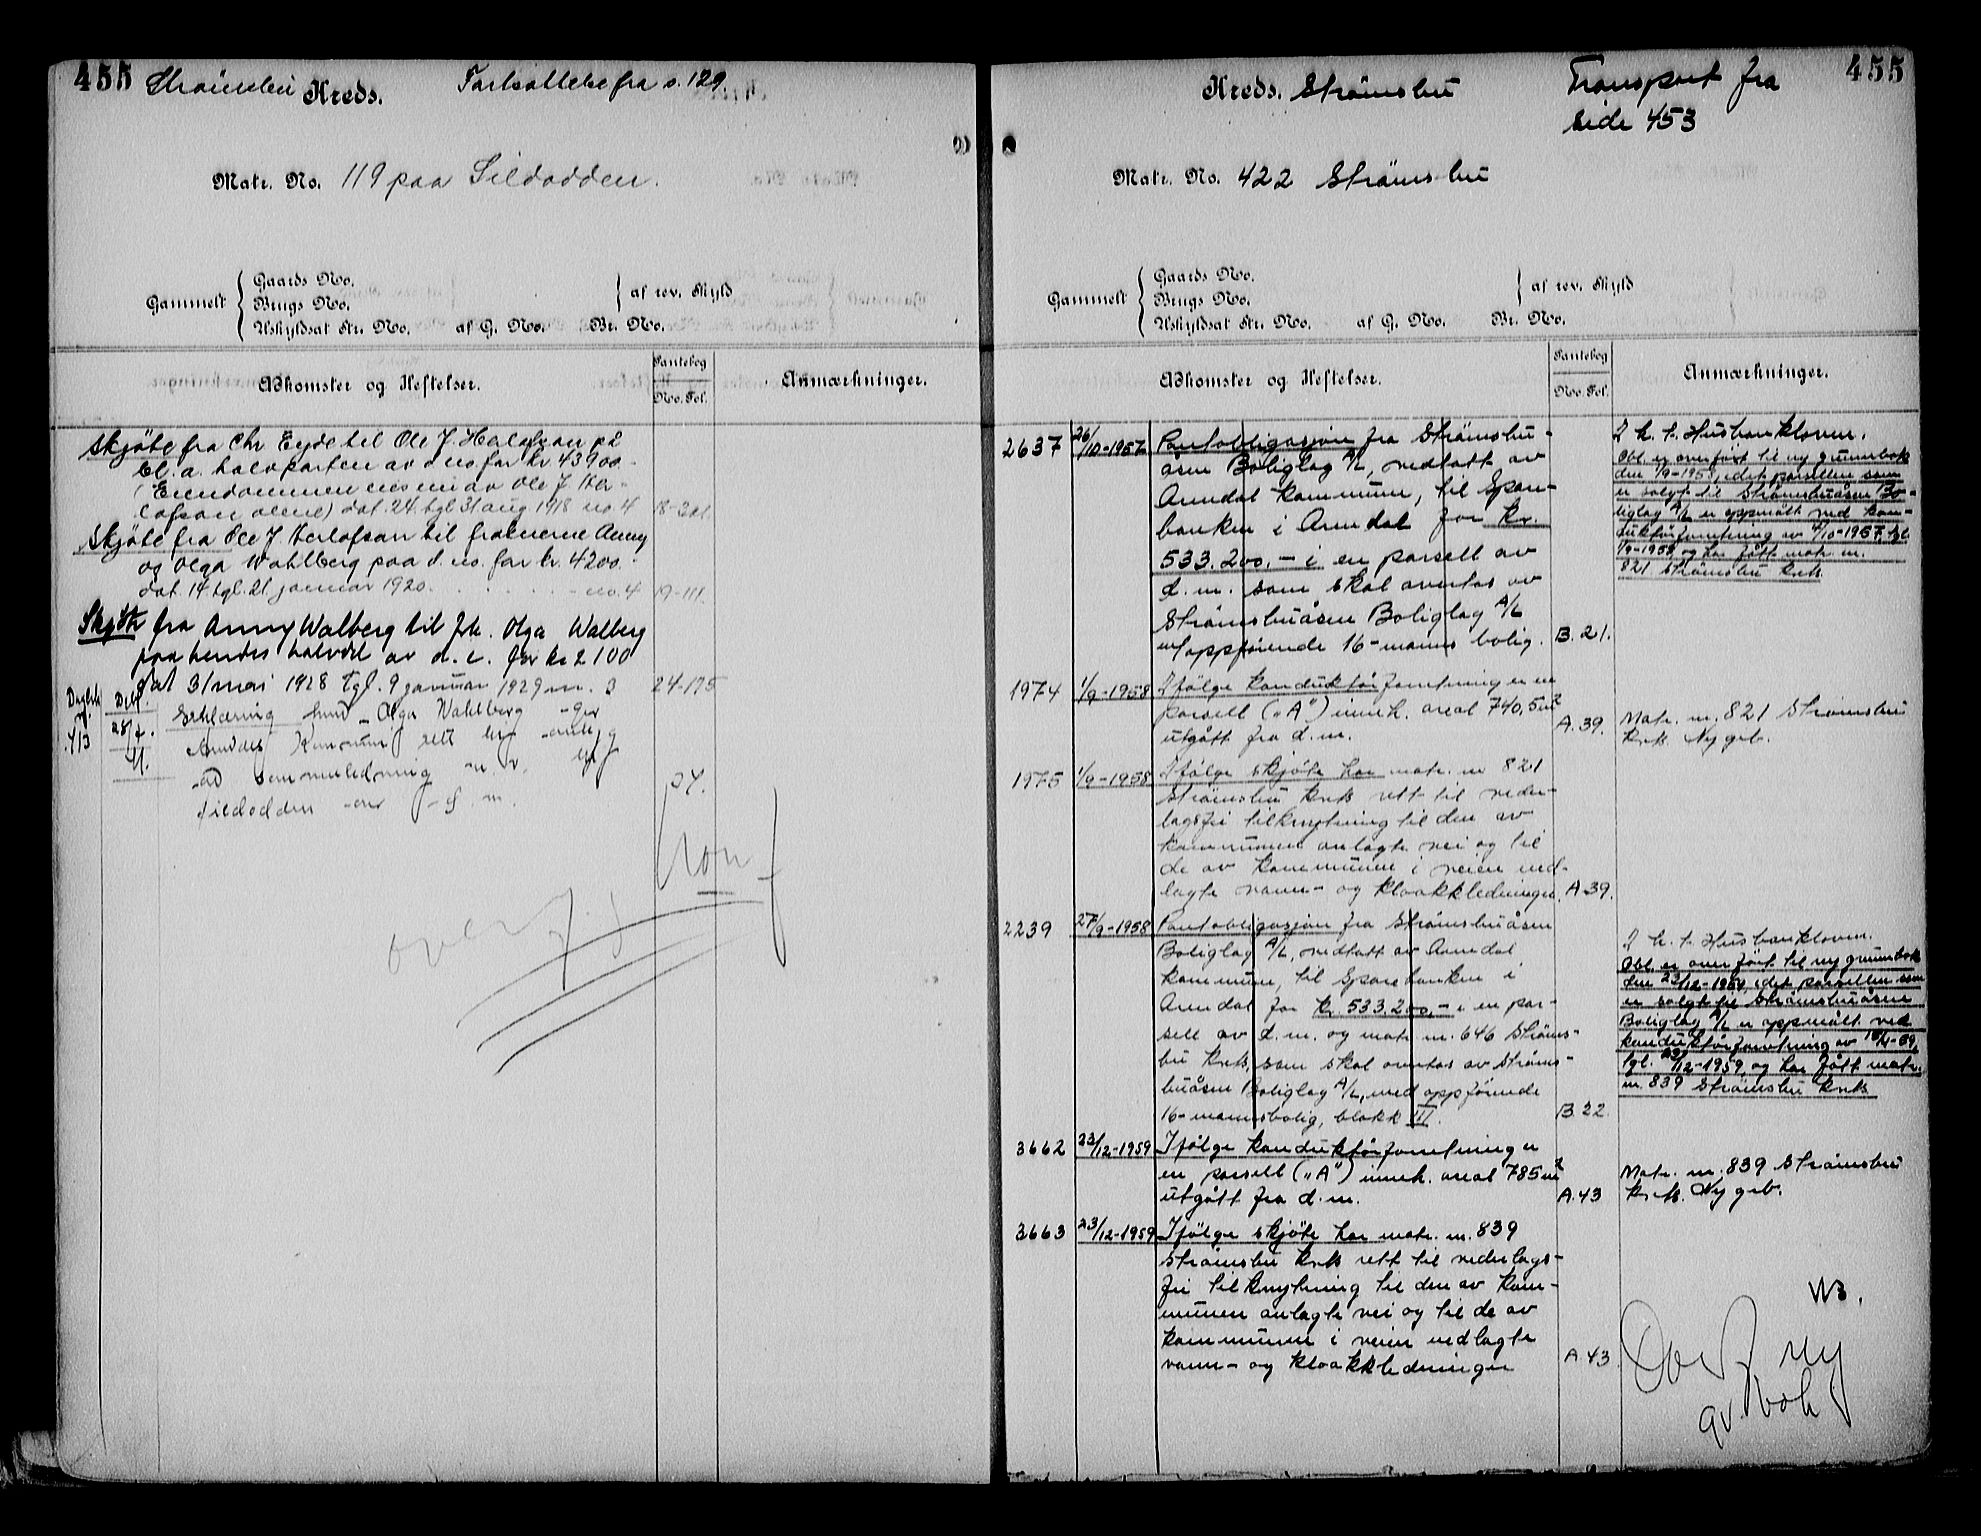 455 Strömsbu Kreds. Fortsættelse fra s. 129.
Matr. No. 119 paa Sildodden.
Gammelt
Gaards No.
Brugs No.
Uskyldsat Str. No. af G. No. Br. No.
af rev. Skyld
Pantebog
Adkomster og Heftelser. No. Fol. Anmærkninger.
Skjöte fra Chr Eyde til Ole J. Herlofson på
bl. a. halvparten av d no for kr 43900.-
(Eiendommen av Ole J. Her-
lofson alene) dat. 24 tgl 31 aug 1918 no 4 18-201
Skjöte fra Ole J. Herlofson til frøknerne Anny
og Olga Wahlberg paa d. no. for kr. 4200.-
dat. 14 tgl. 21 januar 1920. no. 4 19-111.
Skjöte fra Anny Walberg til frk. Olga Walberg
paa hendes halvdel av d. e. for kr 2100
dat 31 mai 1928 tgl. 9 januar 1929 nr. 3 24-175
Dagbok
Erklæring Olga Wahlberg gir
Arendal rett
m. v.
Sildodden over d. m.
24.
455
Kreds. Strömsbu Transport fra
side 453
Matr. No. 422 Strömsbu
Gammelt
Gaards No.
Brugs No.
Uskyldsat Str. No. af G. No. Br. No.
af rev. Skyld
Pantebog
Adkomster og Heftelser. No. Fol. Anmærkninger.
2637 26/10-1957 Pantobligasjon fra Strömsbu-
åsen Boliglag A/L, vedtatt av
Arendal kommune, til Spare-
banken i Arendal for kr.
533.200,- i en parsell av
d. m. som skal overtas av
Strömsbuåsen Boliglag A/L
m/oppförende 16-manns bolig. B.21.
I h. t. Husbankloven.
Obl. er overfört til ny grunnbok
den 1/9-1958, idet parsellen som
er solgt til Strömsbuåsen Bo-
liglag A/L er oppmålt ved kon-
duktörforretning av 4/10-1957 tgl.
1/9-1958 og har fått matr. nr.
821 Strömsbu krets.
1974 1/9-1958 Ifölge konduktörforretning er en
parsell („A") innh. areal 740,5 m2
utgått fra d. m. A.39.
Matr. nr. 821 Strömsbu
krets. Ny grb.
1975 1/9-1958 Ifölge skjöte har matr. nr 821
Strömsbu krets rett til veder-
lagsfri tilknytning til den av
kommunen anlagte vei og til
de av kommunen i veien ned-
lagte vann- og kloakkledninger. A.39.
2239 27/9-1958 Pantobligasjon fra Strömsbuåsen
Boliglag A/L, vedtatt av Arendal
kommune, til Sparebanken i
Arendal for kr. 533.200,- i en par-
sell av d. m. og matr. nr. 646 Ströms-
bu krets, som skal overtas av Ströms-
buåsen Boliglag A/L, med oppförende
16-mannsbolig, blokk III. B.22.
I h. t. Husbankloven.
Obl. er overfört til ny grunnbok
den 23/12-1959, idet parsellen som
er solgt til Strömsbuåsen
Boliglag A/L er oppmålt ved
konduktörforretning av
tgl. 23/12-1959, og har fått matr.
nr. 839 Strömsbu krets
3662 23/12-1959 Ifölge konduktörforretning er
en parsell („A") innh. areal 785 m2
utgått fra d. m. A.43
Matr. nr. 839 Strömsbu
krets. Ny grb.
3663 23/12-1959 Ifölge skjöte har matr. nr. 839
Strömsbu krets rett til vederlags-
fri tilknytning til den av kom-
munen anlagte vei og til de av
kommunen i veien nedlagte
vann- og kloakkledninger A.43
NB.